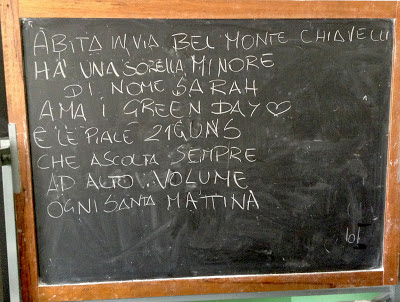 ABITA IN VIA BEL MONTE CHIAVELLI
HA UNA SORELLA MINORE
DI NOME SARAH
AMA I GREEN DAY ♡
E LE PIACE 21GUNS
CHE ASCOLTA SEMPRE
AD ALTO VOLUME
OGNI SANTA MATTINA
lol